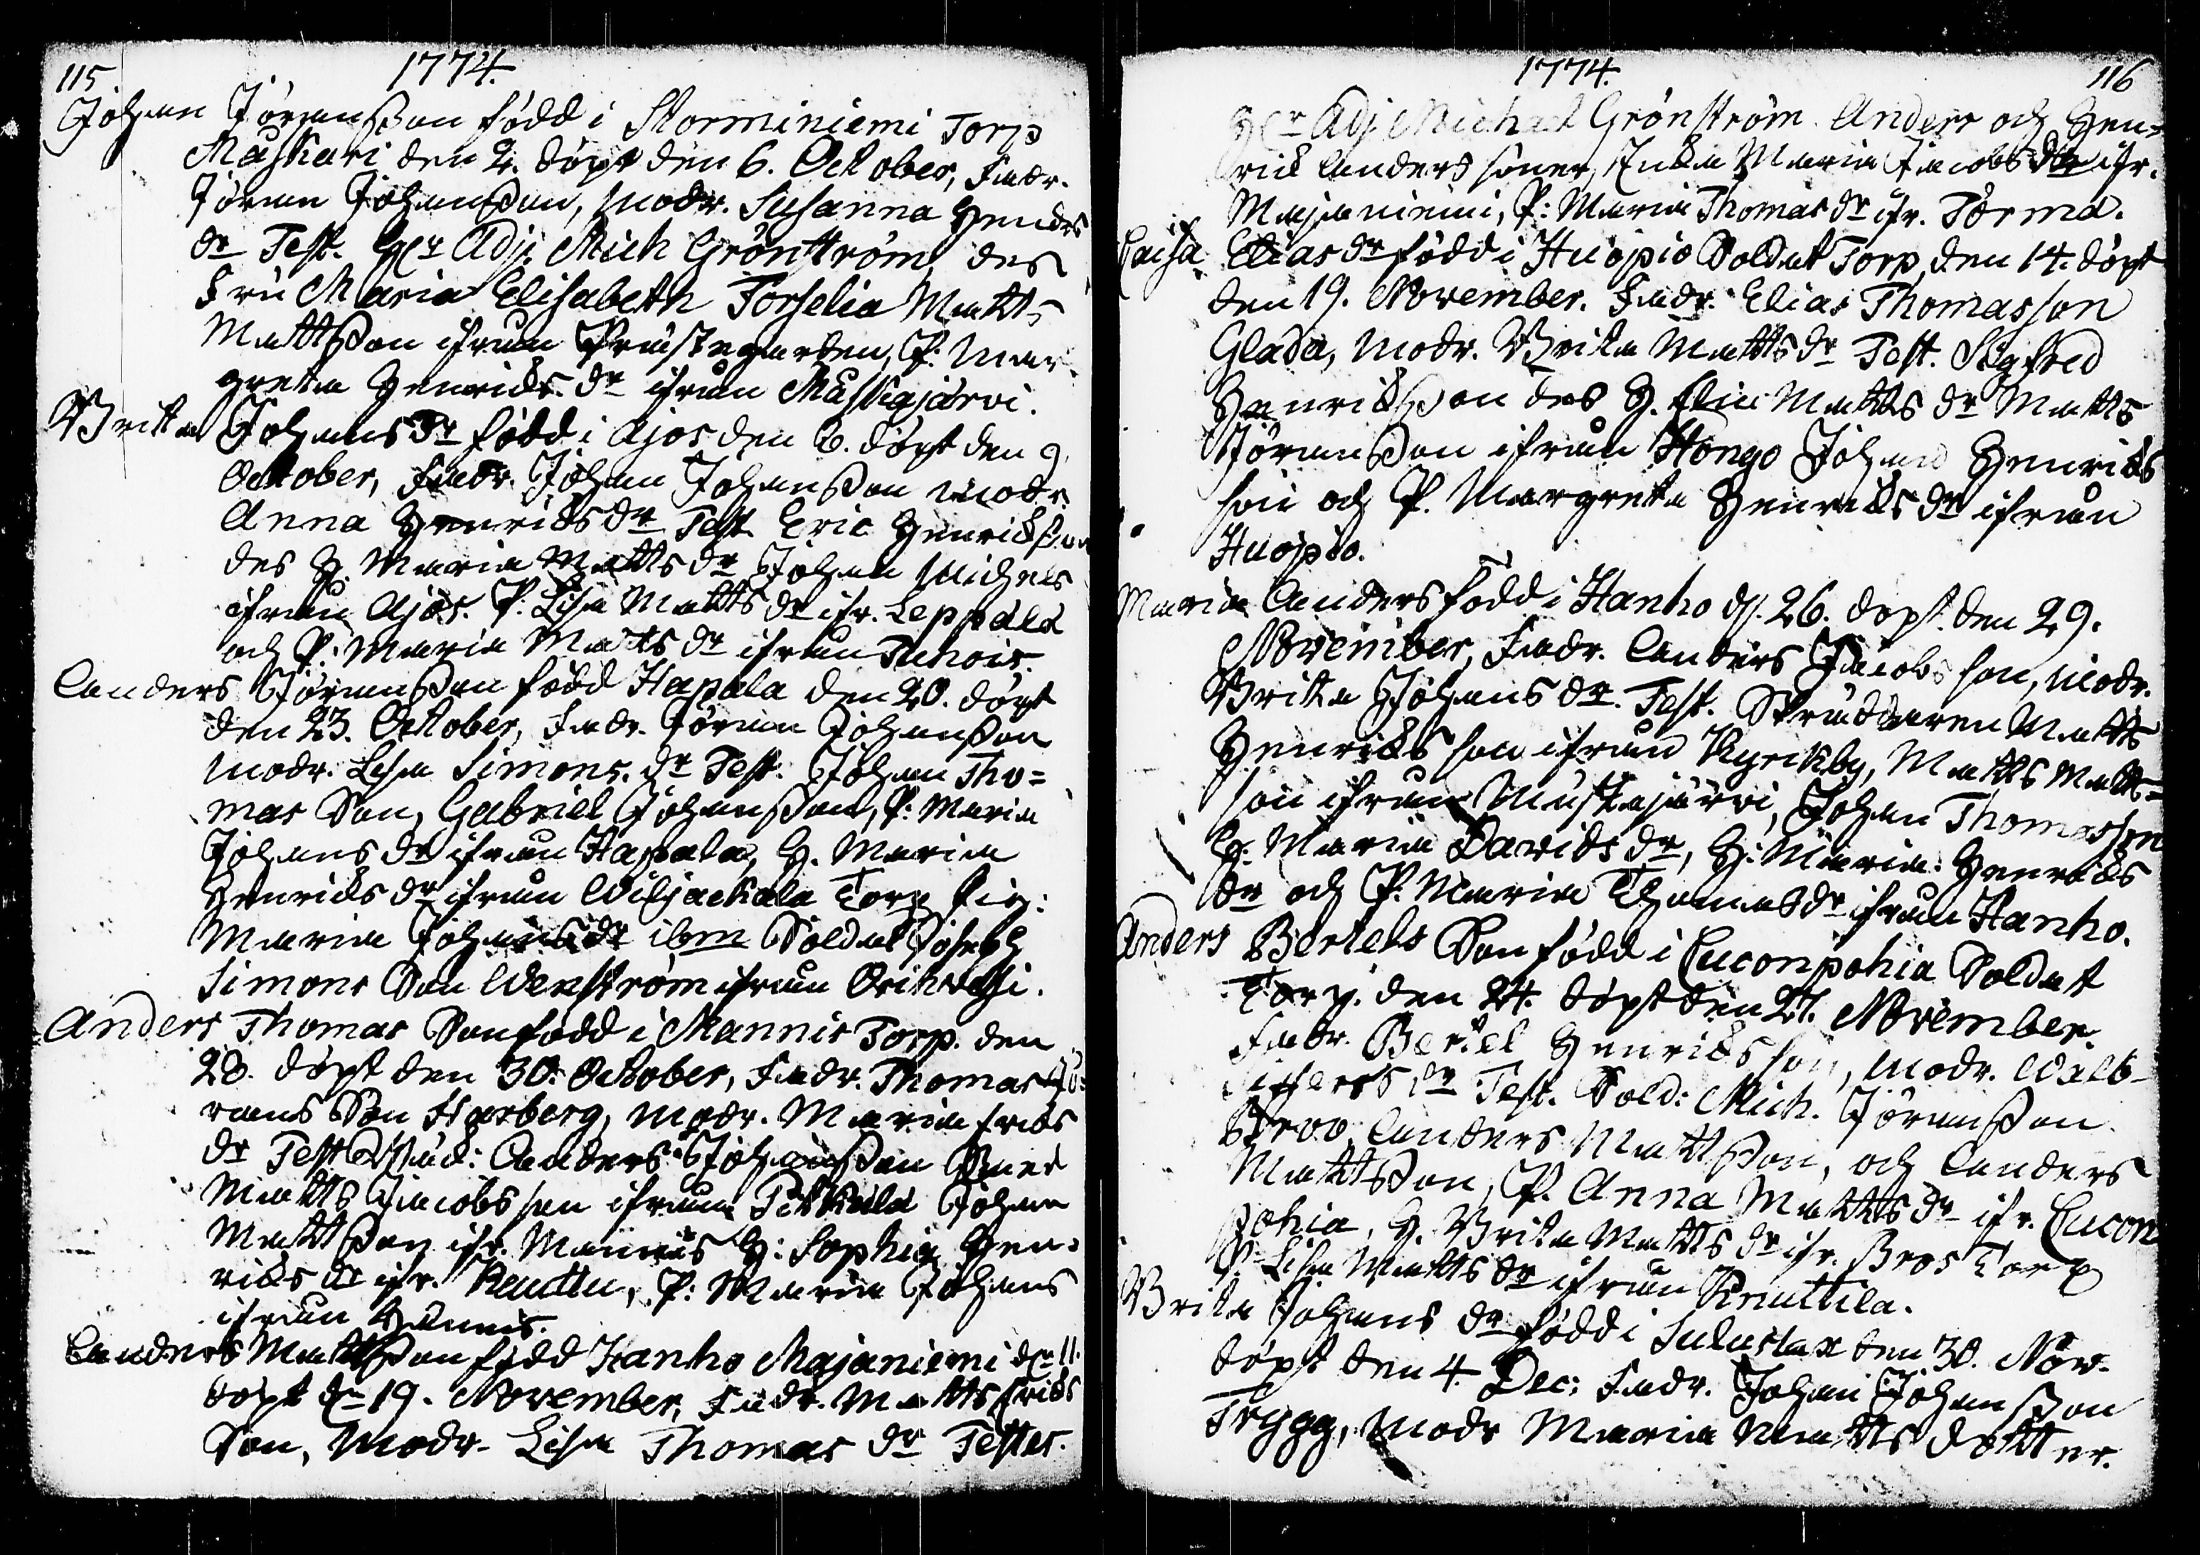 115
1774.
Johan Jöransson född i Storminiemi Torp
Maskari den 2. döpt den 6. October, Fadr.
Jöran Johansson, Modr. Susanna Hendrs
dr Test. Hr Adj. Mich Grönström, des
Fru Maria Elisabeth Forselia Matts
Mattsson ifrån Prästegården, P. Mar-
greta Henrics dr ifrån Maskajärvi.
Brita Johans dr född i Ajos den 6. döpt den 9
October, Fadr. Johan Johansson Modr.
Anna Henrics dr Test. Eric Henricsson
des H. Maria Matts dr Johan Michels
ifrån Ajos. P. Lisa Matts dr ifr. Leppälä
och P. Maria Matts dr ifrån
Anders Jöransson född Hapala den 20. döpt
den 23. October, Fadr. Jöran Johansson
Modr. Lisa Simons. dr Test. Johan Tho=
mas Son, Gabriel Johansson, P. Maria
Johans dr ifrån Hapala, H. Maria
Henrics dr ifrån Wiljackala Torp Pig:
Maria Johans dr ibm Soldat Joseph
Simons Son Wenström ifrån Orihvesi.
Anders Thomas Son född i Mannis Torp. den
28. döpt den 30. October, Fadr. Thomas Jö-
rans Son Harberg, Modr. Maria Erics
dr Test Stud: Anders Johansson
Matts Jacobsson ifrån Pekkala Johan
Mattsson ifr. Mannis H: Sophia Hen-
rics dr ifr. P: Maria Johans
ifrån
Anders Mattsson född Hanho Majaniemi dn 11.
döpt dn 19. November, Fadr. Matts Erics
Son, Modr. Lisa Thomas dr Testes.
1774.
116
Hr Adj Michael Grönström Anders och Hen=
rick Anders söner, Enka Maria Jacobs dr ifr.
Majaniemi, P: Maria Thomas dr ifr. Törmä.
Caisa Elias dr född i Huopio Soldat Torp, den 14. döpt
den 19. November. Fadr. Elias Thomasson
Glada, Modr. Brita Matts dr Test. Sigfred
Henricsson des H. Elin Matts dr Matts
Jöransson ifrån Hongo Johan Henrics
son och P. Margreta Henrics dr ifrån
Huopio.
Maria Anders född i Hanho d. 26. döpt den 29.
November, Fadr. Anders Jacobsson, Modr.
Brita Johans dr. Test. Skräddaren Matts
Henricsson ifrån Kyrckby, Matts Matts=
son ifrån Mustajärvi, Johan Thomasson
H. Maria Davids dr, H: Maria Henrics
dr och P. Maria Thomas dr ifrån Hanho.
Anders Bertels Son född i Cuconpohia Soldat
Torp. den 24. döpt den 27. November.
Fadr. Bertel Henricsson, Modr. Walb-
dr Test. Sold: Mich. Jöransson
Anders Mattsson, och Anders
Mattsson, P. Anna Matts dr ifr. Cucon
pohia, H. Brita Matts dr ifr. Bros Torp
P Lisa Matts dr ifrån Knuttila.
Brita Johans dr född i den 30. Nov-
döpt den 4. Dec: Fadr. Johan Johansson
Trygg, Modr Maria Matts dotter.